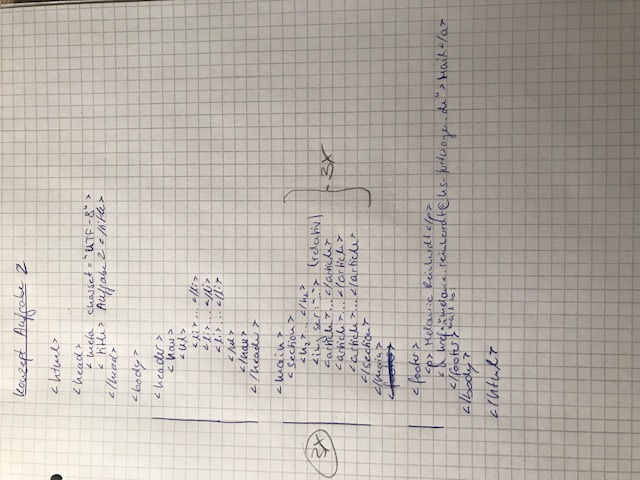 Konzept Aufgabe 2
<html>
<head>
<meta charset="UTF-8">
<title> Aufgabe 2 </title>
</head>
<body>
<header>
<nav>
<ul>
<li>...</li>
<li>...</li>
<li>...</li>
</ul>
</nav>
</header>
<main>
<section>
<h2>...</h2>
<img scr="-"> (relativ)
<article>...</article>
<article>...</article>
<article>...</article>
</section>
3x
3x
</main>
<footer>
<footer>
<p> Melanie Reinhardt </p>
<a href="melanie.reinhardt@hs-furtwangen.de"> Mail </a>
mail to:
</footer>
</body>
</html>